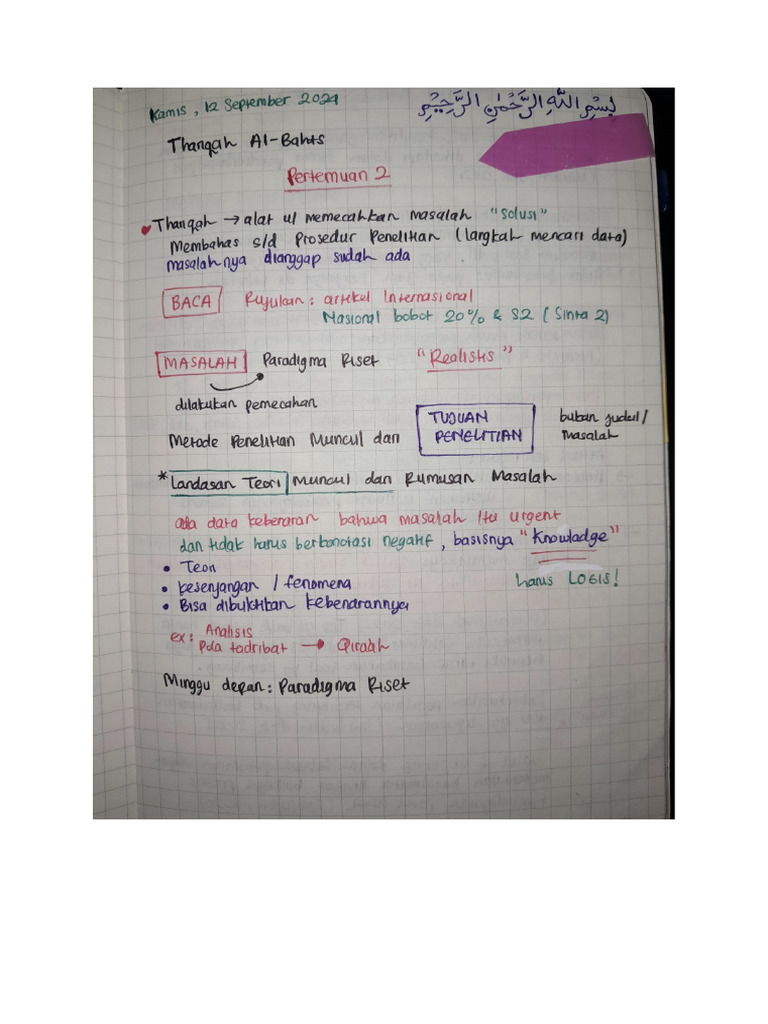 Kamis, 12 September 2024
بِسْمِ اللَّهِ الرَّحْمٰنِ الرَّحِيْمِ
Thariqah Al-Bahts
Pertemuan 2
Thariqah → alat u/ memecahkan masalah "Solusi"
Membahas s/d Prosedur Penelitian (langkah mencari data)
masalahnya dianggap sudah ada
BACA Rujukan: artikel Internasional
Nasional bobot 20% & S2 (Sinta 2)
MASALAH Paradigma Riset "Realistis"
dilakukan pemecahan
Metode Penelitian Muncul dari TUJUAN PENELITIAN bukan judul/ Masalah
* Landasan Teori Muncul dari Rumusan Masalah
ada data kebenaran bahwa masalah itu urgent
dan tidak harus berkonotasi negatif, basisnya "Knowladge"
• Teori
• kesenjangan / fenomena harus LOGIS!
• Bisa dibuktikan kebenarannya
ex: Analisis
Pola tadribat → Qiraah
Minggu depan: Paradigma Riset